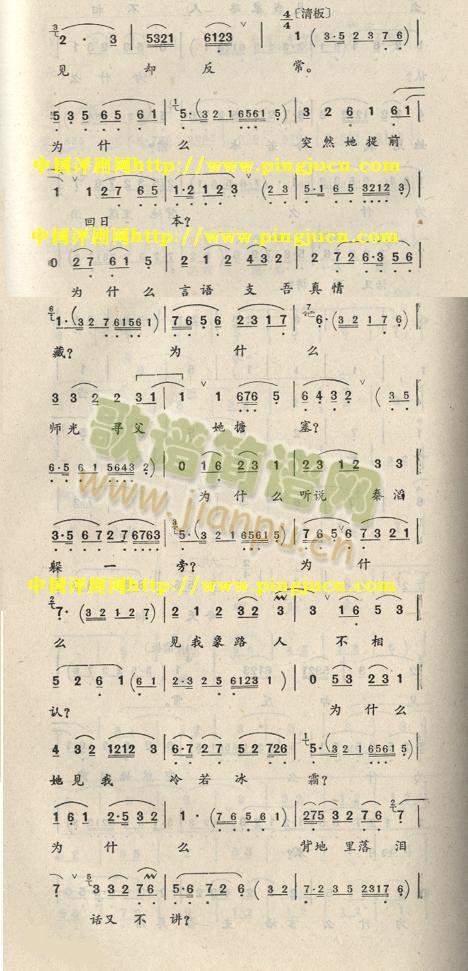 4/4 〔清板〕
2 · 3 | 5321 6123 | 1 (3·5 2376) |
见 却 反 常。
535 65 65 61 | 5·(3 2 1 6561 5) | 3 2 6 1 61 |
为 什 么 突然她提前
中国评剧网http://www.pingjucn.com
1 1 27 65 | 1·2 1 2 3 (23 | 5·1 65 3212 3) |
回日 本?
中国评剧网http://www.pingjucn.com
0 27 61 5 | 21 2 432 | 2 726·356 |
为什么 言语 支吾真情
1·(3 2 7 6156 1) | 7656 2317 | 6·(3 2 1 7 6) |
藏? 为 什 么
歌谱简谱网
www.jianpu.cn
33 2 2 31 | 1 1 676 5 | 6432 2 (35 |
师光 寻父 她搪 塞?
6·5 6 1 5643 2) | 0 16 231 | 23 12 3 3 |
为什么听说 秦滔
3·5 6727 6763 | 5·(3 2 1 6561 5) | 765 67321 |
躲 一 旁? 为 什
中国评剧网http://www.pingjucn.com
7·(3 2 1 2 7) | 21 232 3 | 3 16 5 3 |
么 见我象路人 不相
5 26 1 (61 | 2·3 2 5 6123 1) | 0 53 231 |
认? 为什么
4 32 1212 3 | 6·7 27 52 726 | 5·(3 2 1 6561 5) |
她见 我 冷若冰 霜?
161 2·532 | 1·(7 6561) | 275 3276 7 |
为 什 么 背地里落泪
7 3 32 76 | 5·6 726 (32 | 7·2 35 2317 6) |
话又不 讲?